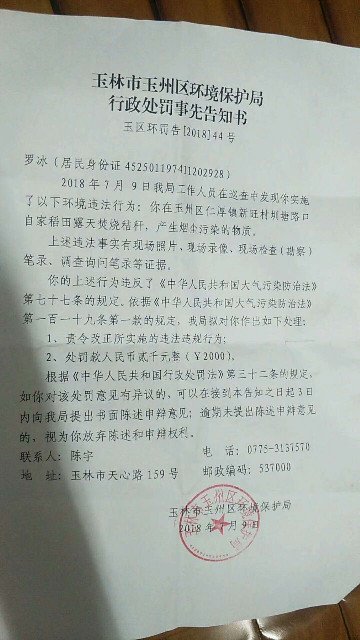 玉林市玉州区环境保护局
行政处罚事先告知书
玉区环罚告[2018]44号
罗冰（居民身份证452501197411202928）
2018年7月9日我局工作人员在巡查中发现你实施
了以下环境违法行为：你在玉州区仁厚镇新旺村圳塘路口
自家稻田露天焚烧秸秆，产生烟尘污染的物质。
上述违法事实有现场照片、现场录像、现场检查（勘察）
笔录、调查询问笔录等证据。
你的上述行为违反了《中华人民共和国大气污染防治法》
第七十七条的规定。依据《中华人民共和国大气污染防治法》
第一百一十九条第一款的规定，我局拟对你作出如下处理：
1、责令改正所实施的违法违规行为；
2、处罚款人民币贰仟元整（￥2000）。
根据《中华人民共和国行政处罚法》第三十二条的规定，
如你对该处罚意见有异议的，可以在接到本告知之日起3日
内向我局提出书面陈述申辩意见；逾期未提出陈述申辩意见
的，视为你放弃陈述和申辩权利。
联系人：陈宇 电 话：0775-3137570
地 址：玉林市天心路159号 邮政编码：537000
玉林市玉州区环境保护局
2018年7月9日